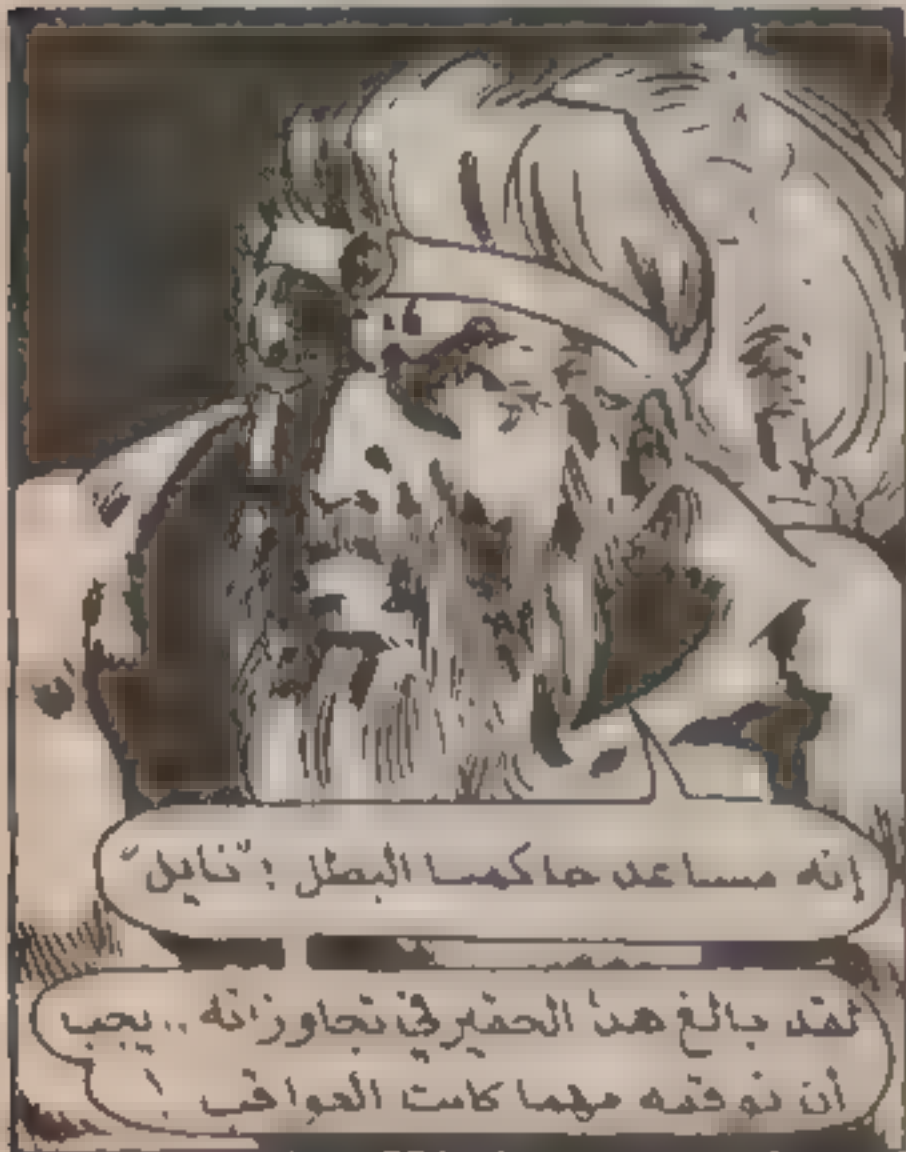 إنه مساعد حاكمنا البطل : "نابل"
لقد بالغ هذا الحقير في تجاوزاته .. يجب
أن نوقفه مهما كانت العواقب !